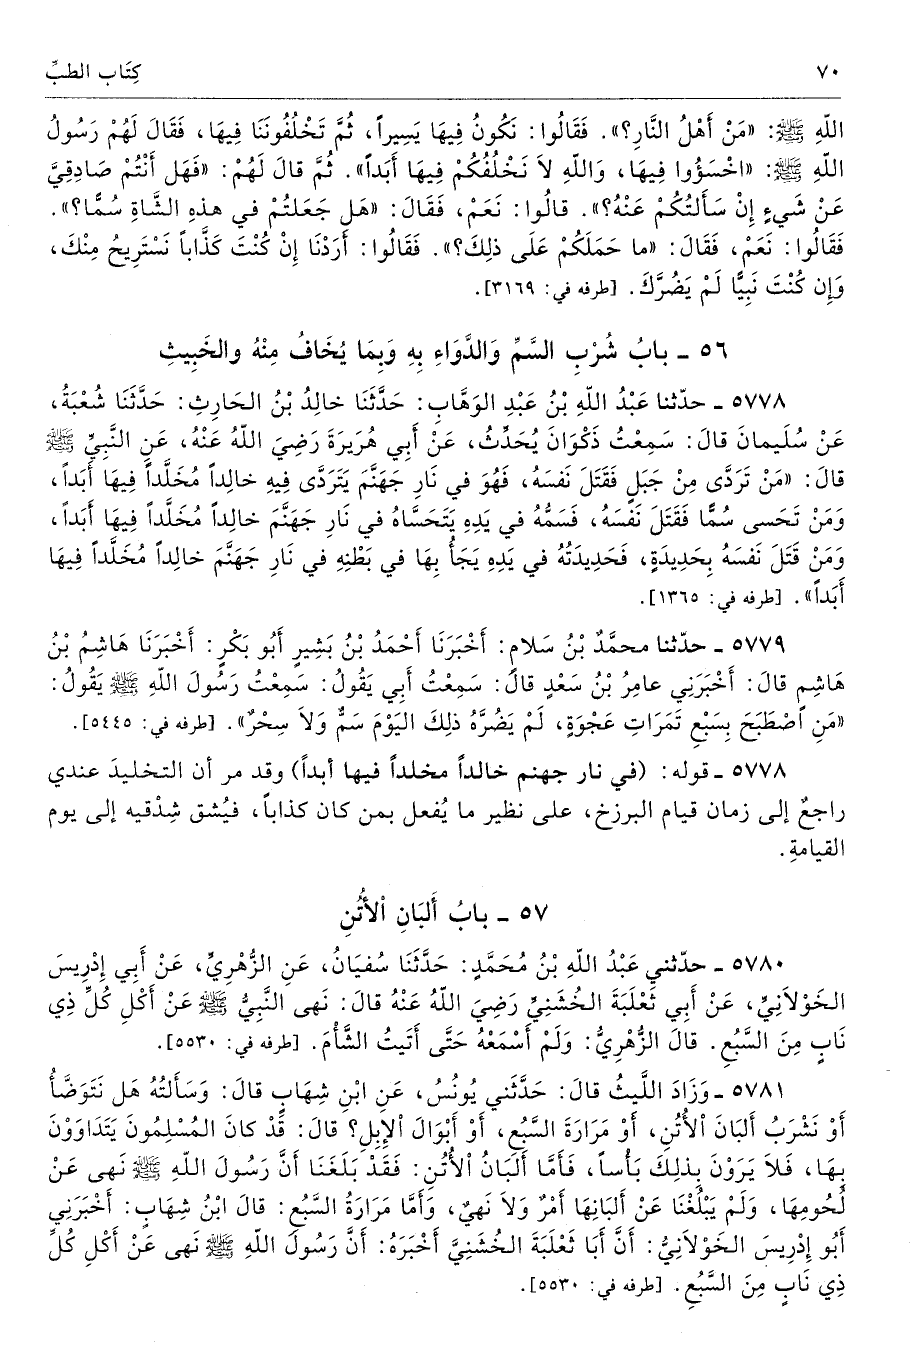 ٧٠ كِتَاب الطبِّ
اللّهِ ﷺ: «مَنْ أَهْلُ النَّارِ؟». فَقَالُوا: نَكُونُ فِيهَا يَسِيراً، ثُمَّ تَخْلُفُونَنَا فِيهَا، فَقَالَ لَهُمْ رَسُولُ
اللّهِ ﷺ: «اخْسَؤُوا فِيهَا، وَاللّهِ لاَ نَخْلُفُكُمْ فِيهَا أَبَداً». ثُمَّ قالَ لَهُمْ: «فَهَل أَنْتُمْ صَادِقِيَّ
عَنْ شَيءٍ إِنْ سَأَلتُكُمْ عَنْهُ؟». قالُوا: نَعَمْ، فَقَالَ: «هَل جَعَلتُمْ في هذهِ الشَّاةِ سُمًّا؟».
فَقَالُوا: نَعَمْ، فَقَالَ: «ما حَمَلَكُمْ عَلَى ذلِكَ؟». فَقَالُوا: أَرَدْنَا إِنْ كُنْتَ كَذَّاباً نَسْتَرِيحُ مِنْكَ،
وَإِن كُنْتَ نَبِيًّا لَمْ يَضُرَّكَ. [طرفه في: ٣١٦٩].
٥٦ ـ بابُ شُرْبِ السَّمِّ وَالدَّوَاءِ بِهِ وَبِمَا يُخَافُ مِنْهُ والخَبِيثِ
٥٧٧٨ ـ حدّثنا عَبْدُ اللّهِ بْنُ عَبْدِ الوَهَّابِ: حَدَّثَنَا خالِدُ بْنُ الحَارِثِ: حَدَّثَنَا شُعْبَةُ،
عَنْ سُلَيمانَ قالَ: سَمِعْتُ ذَكْوَانَ يُحَدِّثُ، عَنْ أَبِي هُرَيرَةَ رَضِيَ اللّهُ عَنْهُ، عَنِ النَّبِيِّ ﷺ
قالَ: «مَنْ تَرَدَّى مِنْ جَبَلٍ فَقَتَلَ نَفسَهُ، فَهُوَ في نَارِ جَهَنَّمَ يَتَرَدَّى فِيهِ خالِداً مُخَلَّداً فِيهَا أَبَداً،
وَمَنْ تَحَسى سُمًّا فَقَتَلَ نَفْسَهُ، فَسَمُّهُ في يَدِهِ يَتَحَسَّاهُ في نَارِ جَهَنَّمَ خالِداً مُخَلَّداً فِيهَا أَبَداً،
وَمَنْ قَتَلَ نَفسَهُ بِحَدِيدَةٍ، فَحَدِيدَتُهُ في يَدِهِ يَجَأُ بِهَا في بَطْنِهِ في نَارِ جَهَنَّمَ خالِداً مُخَلَّداً فِيهَا
أَبَداً». [طرفه في: ١٣٦٥].
٥٧٧٩ ـ حدّثنا محمَّدٌ بْنُ سَلاَمٍ: أَخْبَرَنَا أَحْمَدُ بْنُ بَشِيرٍ أَبُو بَكْرٍ: أَخْبَرَنَا هَاشِمُ بْنُ
هَاشِمٍ قالَ: أَخْبَرَنِي عامِرُ بْنُ سَعْدٍ قالَ: سَمِعْتُ أَبِي يَقُولُ: سَمِعْتُ رَسُولَ اللّهِ ﷺ يَقُولُ:
«مَنِ اصْطَبَحَ بِسَبْعِ تَمَرَاتِ عَجْوَةٍ، لَمْ يَضُرَّهُ ذلِكَ اليَوْمَ سَمٌّ وَلاَ سِحْرٌ». [طرفه في: ٥٤٤٥].
٥٧٧٨ ـ قوله: (في نار جهنم خالداً مخلداً فيها أبداً) وقد مر أن التخليدَ عندي
راجعٌ إلى زمان قيام البرزخ، على نظير ما يُفعل بمن كان كذاباً، فيُشق شِدْقيه إلى يوم
القيامةِ.
٥٧ ـ بابُ أَلبَانِ الأُتُنِ
٥٧٨٠ ـ حدّثني عَبْدُ اللّهِ بْنُ مُحَمَّدٍ: حَدَّثَنَا سُفيَانُ، عَنِ الزُّهْرِيِّ، عَنْ أَبِي إِدْرِيسَ
الخَوْلاَنِيِّ، عَنْ أَبِي ثَعْلَبَةَ الخُشَنِيِّ رَضِيَ اللّهُ عَنْهُ قالَ: نَهى النَّبِيُّ ﷺ عَنْ أَكْلِ كُلِّ ذِي
نَابٍ مِنَ السَّبُعِ. قالَ الزُّهْرِيُّ: وَلَمْ أَسْمَعْهُ حَتَّى أَتَيتُ الشَّأْمَ. [طرفه في: ٥٥٣٠].
٥٧٨١ ـ وَزَادَ اللَّيثُ قالَ: حَدَّثَنِي يُونُسُ، عَنِ ابْنِ شِهَابٍ قالَ: وَسَأَلتُهُ هَل نَتَوَضَّأُ
أَوْ نَشْرَبُ أَلبَانَ الأُتُنِ، أَوْ مَرَارَةَ السَّبُعِ، أَوْ أَبْوَالَ الإِبِلِ؟ قالَ: قَدْ كانَ المُسْلِمُونَ يَتَدَاوَوْنَ
بِهَا، فَلاَ يَرَوْنَ بِذلِكَ بَأْساً، فَأَمَّا أَلبَانُ الأُتُنِ: فَقَدْ بَلَغَنَا أَنَّ رَسُولَ اللّهِ ﷺ نَهى عَنْ
لُحُومِهَا، وَلَمْ يَبْلُغْنَا عَنْ أَلبَانِهَا أَمْرٌ وَلاَ نَهيٌ، وَأَمَّا مَرَارَةُ السَّبُعِ: قالَ ابْنُ شِهَابٍ: أَخْبَرَنِي
أَبُو إِدْرِيسَ الخَوْلاَنِيُّ: أَنَّ أَبَا ثَعْلَبَةَ الخُشَنِيَّ أَخْبَرَهُ: أَنَّ رَسُولَ اللّهِ ﷺ نَهى عَنْ أَكْلِ كُلِّ
ذِي نَابٍ مِنَ السَّبُعِ. [طرفه في: ٥٥٣٠].